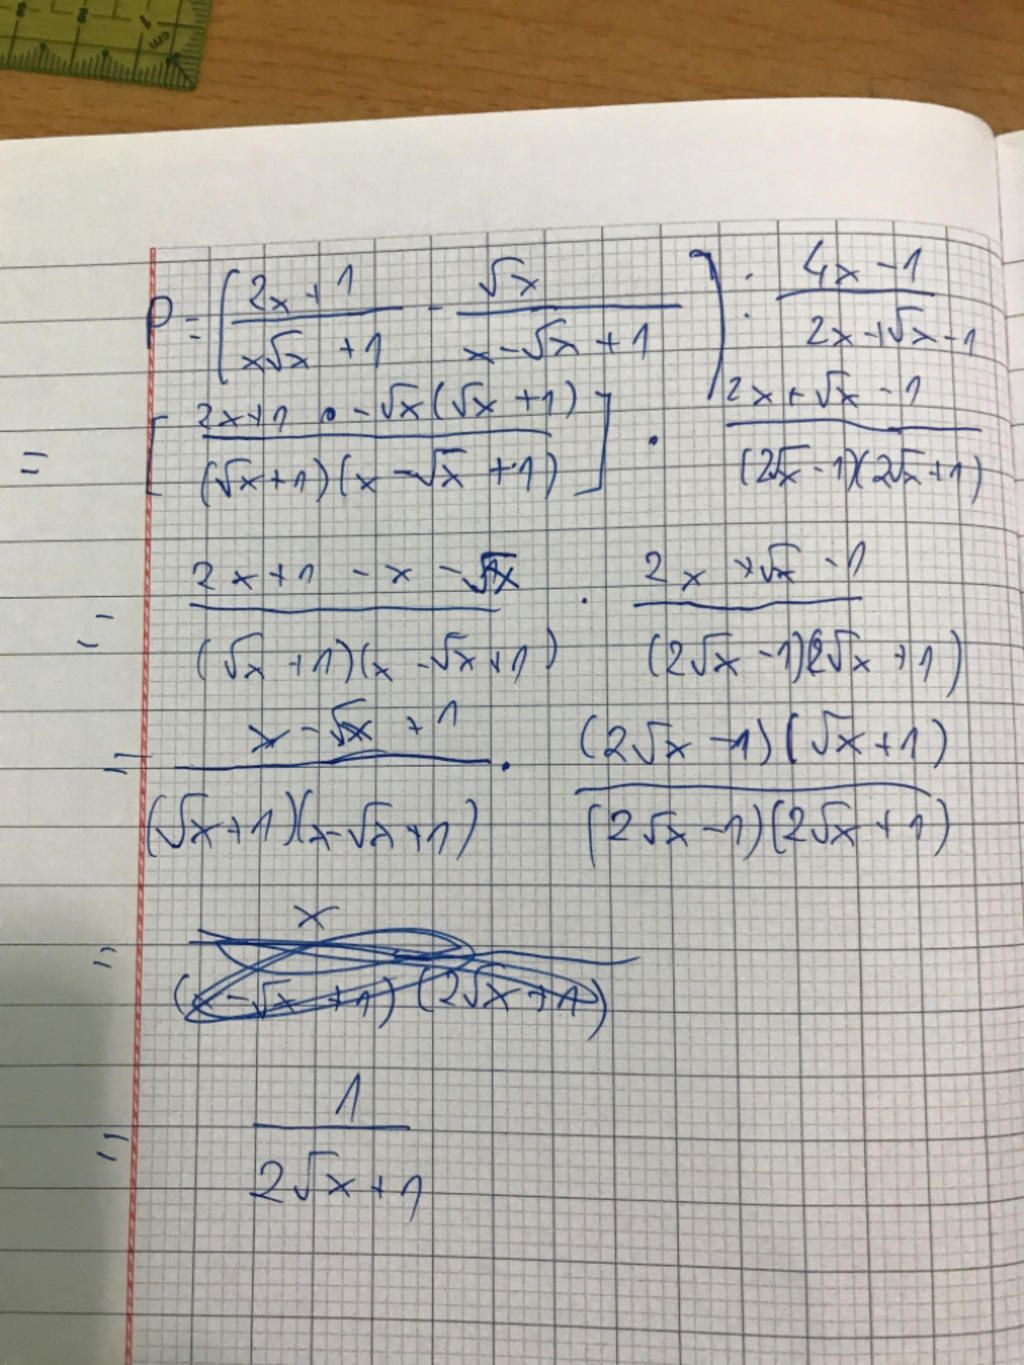 P = [ (2x + 1)/(x√x + 1) - √x/(x - √x + 1) ] : (4x - 1)/(2x + √x - 1)
= [ (2x + 1 - √x(√x + 1))/((√x + 1)(x - √x + 1)) ] . (2x + √x - 1)/((2√x - 1)(2√x + 1))
= (2x + 1 - x - √x)/((√x + 1)(x - √x + 1)) . (2x + √x - 1)/((2√x - 1)(2√x + 1))
= (x - √x + 1)/((√x + 1)(x - √x + 1)) . ((2√x - 1)(√x + 1))/((2√x - 1)(2√x + 1))
= x/((x - √x + 1)(2√x + 1))
= 1/(2√x + 1)